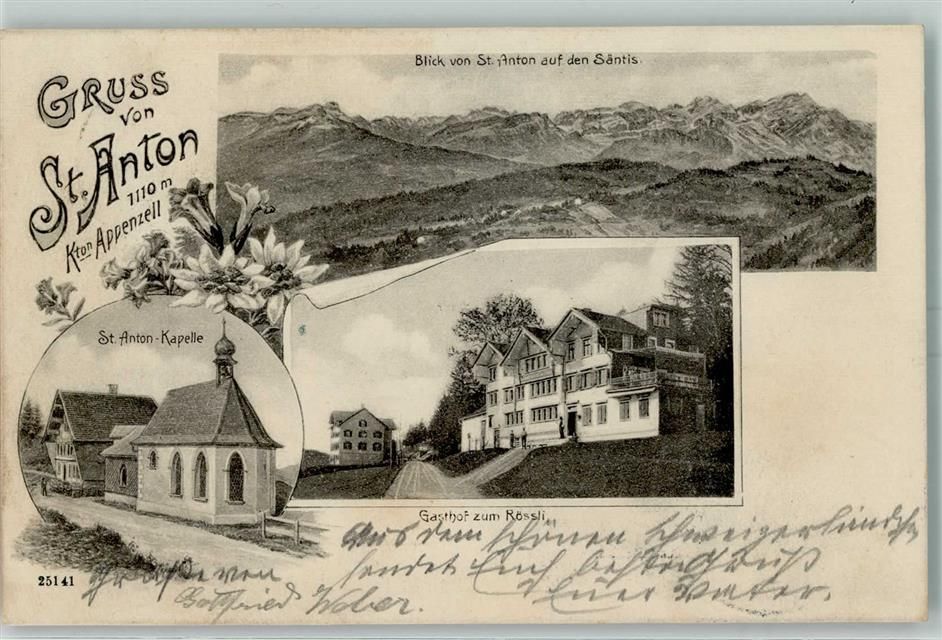 Gruss
von
St. Anton
1110 m
Kton Appenzell
Blick von St. Anton auf den Säntis.
St. Anton-Kapelle
Gasthof zum Rössli
25141
Aus dem schönen Schweizerländchen
sendet Euch beste Gruß
Euer Vater.
Grüße von
Gottfried Weber.